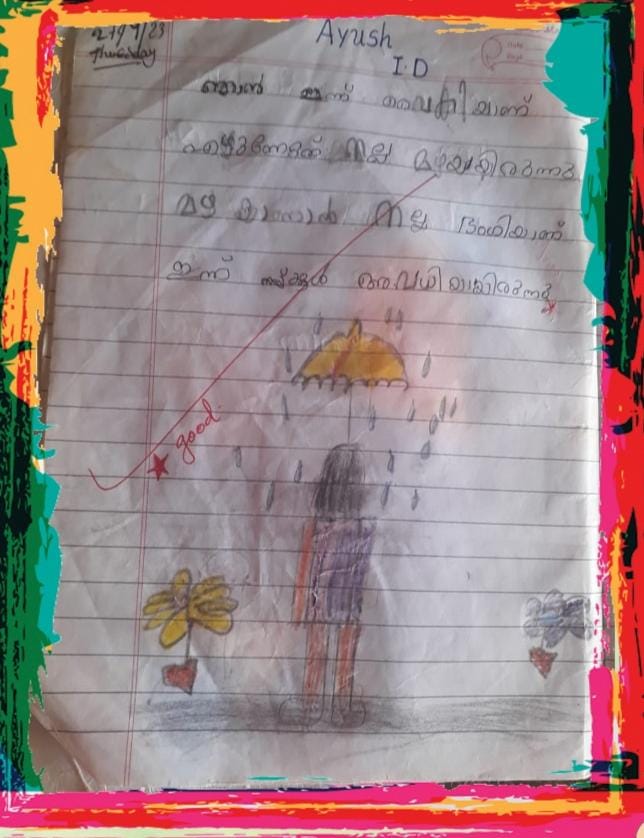 27/7/23
Thursday
Ayush
I.D
Date
Page
ഞാൻ ഇന്ന് വൈകിയാണ്
എഴുന്നേറ്റത് നല്ല മഴയായിരുന്നു
മഴ കാണാൻ നല്ല ഭംഗിയാണ്
ഇന്ന് സ്കൂൾ അവധിയായിരുന്നു
good